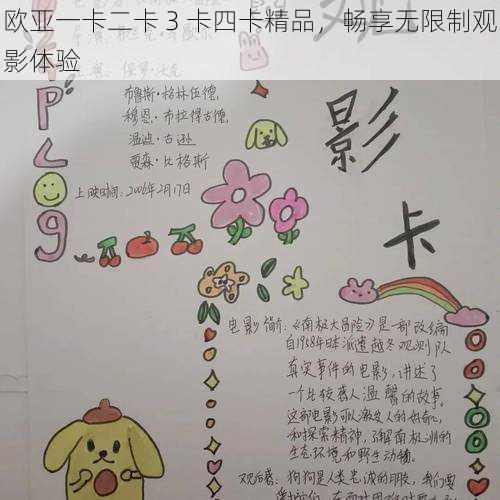 欧亚一卡二卡 3 卡四卡精品，畅享无限制观
影体验
主演：保罗·沃克
布鲁斯·格林伍德，
穆恩·布拉得古德，
温迪·古逊
贾森·比格斯
上映时间：2006年2月17日
P
L
O
g
影
卡
电影简介：《南极大冒险》是一部改编
自1958年日本派遣越冬观测队
真实事件的电影，讲述了
一个比较感人温馨的故事。
这部电影可以激发人的好奇心
和探索精神，了解南极洲的
生态环境和野生动物
观后感：狗狗是人类忠诚的朋友，我们要